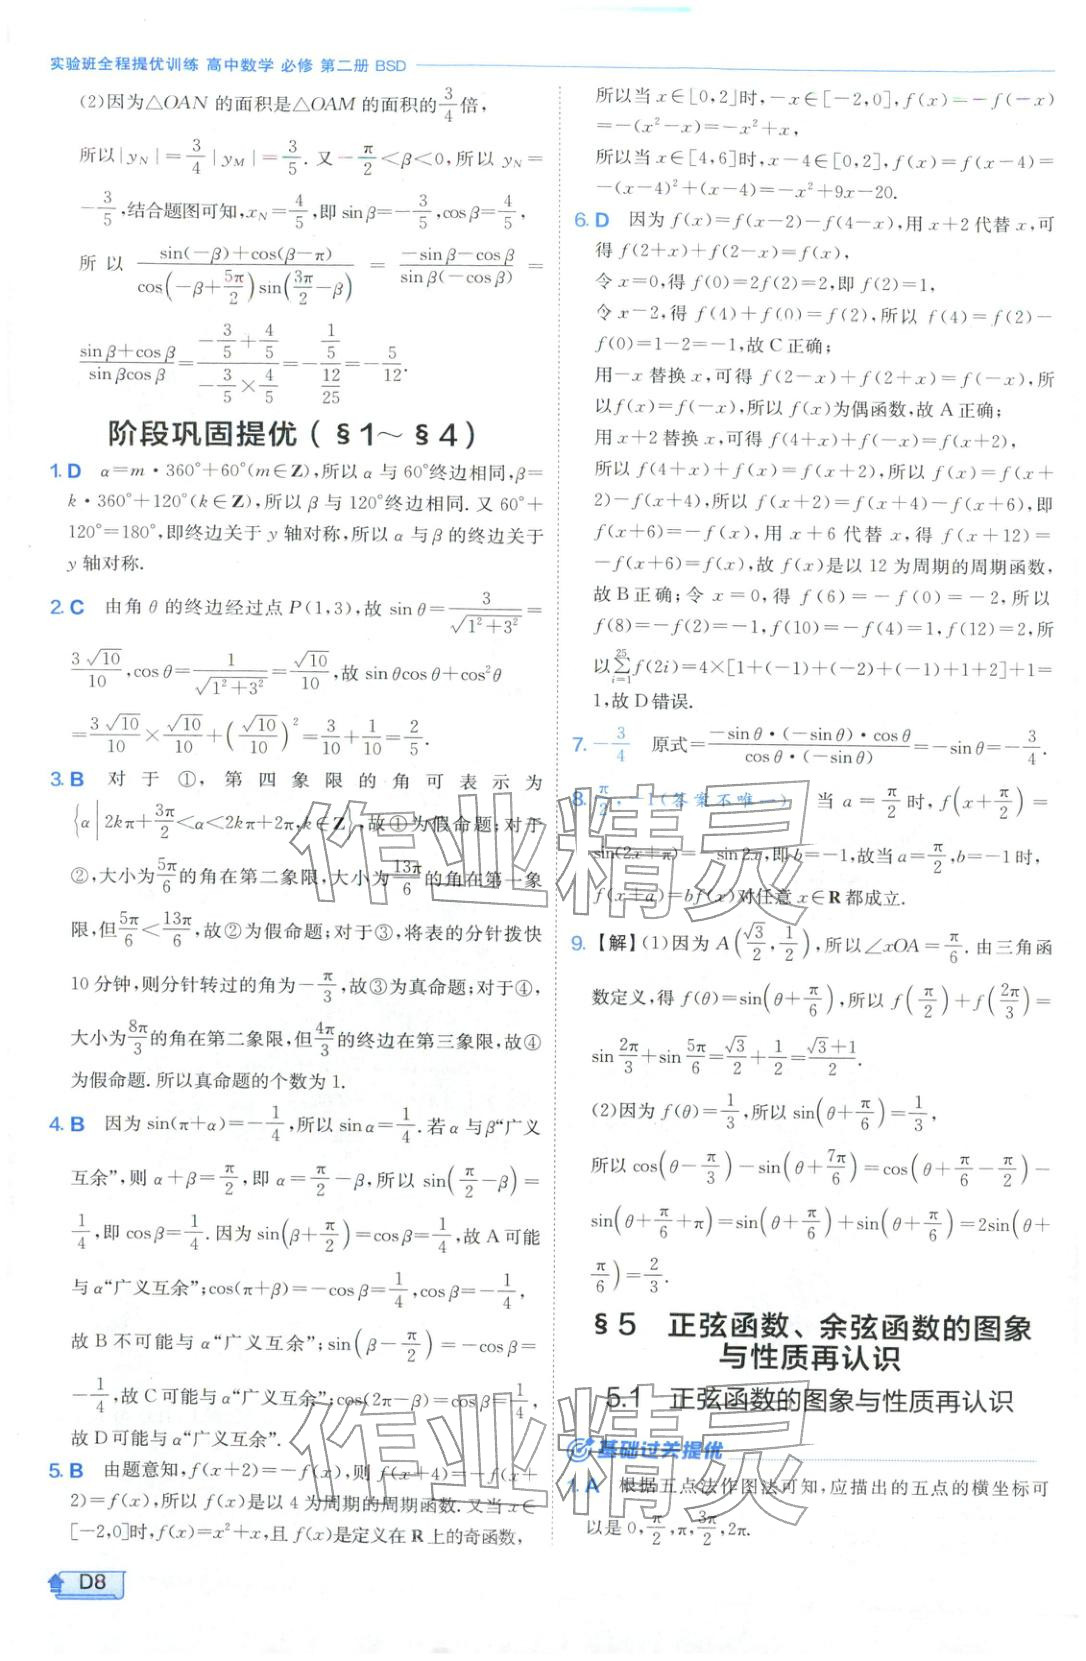 实验班全程提优训练 高中数学 必修 第二册 BSD
(2)因为△OAN 的面积是△OAM 的面积的3/4倍，
所以|y_N|=3/4|y_M|=3/5. 又-π/2<β<0，所以 y_N=
-3/5，结合题图可知，x_N=4/5，即 sin β=-3/5，cos β=4/5，
所以 (sin(-β)+cos(β-π))/(cos(-β+5π/2)sin(3π/2-β)) = (-sin β-cos β)/(sin β(-cos β)) =
(sin β+cos β)/(sin βcos β)=(-3/5+4/5)/(-3/5×4/5)=-(1/5)/(12/25)=-5/12.
阶段巩固提优(§1～§4)
1. D α=m·360°+60°(m∈Z)，所以 α 与 60°终边相同，β=
k·360°+120°(k∈Z)，所以 β 与 120°终边相同. 又 60°+
120°=180°，即终边关于 y 轴对称，所以 α 与 β 的终边关于
y 轴对称.
2. C 由角 θ 的终边经过点 P(1,3)，故 sin θ=3/√(1²+3²)=
3√10/10，cos θ=1/√(1²+3²)=√10/10，故 sin θcos θ+cos²θ
=3√10/10×√10/10+(√10/10)²=3/10+1/10=2/5.
3. B 对于①，第四象限的角可表示为
{α|2kπ+3π/2<α<2kπ+2π,k∈Z}，故①为假命题；对于
②，大小为5π/6的角在第二象限，大小为13π/6的角在第一象
限，但5π/6<13π/6，故②为假命题；对于③，将表的分针拨快
10 分钟，则分针转过的角为-π/3，故③为真命题；对于④，
大小为8π/3的角在第二象限，但4π/3的终边在第三象限，故④
为假命题. 所以真命题的个数为 1.
4. B 因为 sin(π+α)=-1/4，所以 sin α=1/4. 若 α 与 β“广义
互余”，则 α+β=π/2，即 α=π/2-β，所以 sin(π/2-β)=
1/4，即 cos β=1/4. 因为 sin(β+π/2)=cos β=1/4，故 A 可能
与 α“广义互余”；cos(π+β)=-cos β=1/4，cos β=-1/4，
故 B 不可能与 α“广义互余”；sin(β-π/2)=-cos β=
-1/4，故 C 可能与 α“广义互余”；cos(2π-β)=cos β=1/4，
故 D 可能与 α“广义互余”.
5. B 由题意知，f(x+2)=-f(x)，则 f(x+4)=-f(x+
2)=f(x)，所以 f(x)是以 4 为周期的周期函数. 又当 x∈
[-2,0]时，f(x)=x²+x，且 f(x)是定义在 R 上的奇函数，
D8
所以当 x∈[0,2]时，-x∈[-2,0]，f(x)=-f(-x)
=-(x²-x)=-x²+x，
所以当 x∈[4,6]时，x-4∈[0,2]，f(x)=f(x-4)=
-(x-4)²+(x-4)=-x²+9x-20.
6. D 因为 f(x)=f(x-2)-f(4-x)，用 x+2 代替 x，可
得 f(2+x)+f(2-x)=f(x)，
令 x=0，得 f(0)=2f(2)=2，即 f(2)=1，
令 x=2，得 f(4)+f(0)=f(2)，所以 f(4)=f(2)-
f(0)=1-2=-1，故 C 正确；
用-x 替换 x，可得 f(2-x)+f(2+x)=f(-x)，所
以 f(x)=f(-x)，所以 f(x)为偶函数，故 A 正确；
用 x+2 替换 x，可得 f(4+x)+f(-x)=f(x+2)，
所以 f(4+x)+f(x)=f(x+2)，所以 f(x)=f(x+
2)-f(x+4)，所以 f(x+2)=f(x+4)-f(x+6)，即
f(x+6)=-f(x)，用 x+6 代替 x，得 f(x+12)=
-f(x+6)=f(x)，故 f(x)是以 12 为周期的周期函数，
故 B 正确；令 x=0，得 f(6)=-f(0)=-2，所以
f(8)=-f(2)=-1，f(10)=-f(4)=1，f(12)=2，所
以∑_{i=1}^{25}f(2i)=4×[1+(-1)+(-2)+(-1)+1+2]+1=
1，故 D 错误.
7. -3/4 原式=(-sin θ·(-sin θ)·cos θ)/(cos θ·(-sin θ))=-sin θ=-3/4.
8. π/2，-1(答案不唯一) 当 a=π/2时，f(x+π/2)=
sin(2x+π)=-sin 2x，即 b=-1，故当 a=π/2，b=-1 时，
f(x+a)=bf(x)对任意 x∈R 都成立.
9. 【解】(1)因为 A(√3/2,1/2)，所以∠xOA=π/6. 由三角函
数定义，得 f(θ)=sin(θ+π/6)，所以 f(π/2)+f(2π/3)=
sin 2π/3+sin 5π/6=√3/2+1/2=(√3+1)/2.
(2)因为 f(θ)=1/3，所以 sin(θ+π/6)=1/3，
所以 cos(θ-π/3)-sin(θ+7π/6)=cos(θ+π/6-π/2)-
sin(θ+π/6+π)=sin(θ+π/6)+sin(θ+π/6)=2sin(θ+
π/6)=2/3.
§5 正弦函数、余弦函数的图象
与性质再认识
5.1 正弦函数的图象与性质再认识
基础过关提优
1. A 根据五点法作图法可知，应描出的五点的横坐标可
以是 0，π/2，π，3π/2，2π.
作业精灵
作业精灵